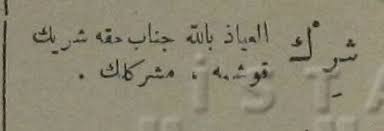 شِرْك العياذ بالله جناب حقه شريك
قوشمه ، مشركلك .
İSTA